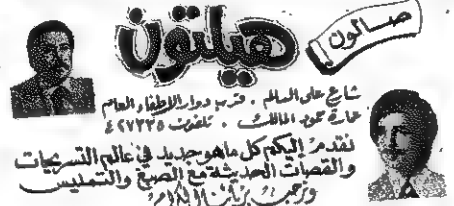 صالون
هيلتون
شارع علي السالم . قرب دوار الإطفاء العام
عمارة حمود المالك . تلفون ٤٢٧٣٣٥
نقدم إليكم كل ماهو جديد في عالم التسريحات
والقصات الحديثة مع الصبغ والتمليس
ونرحب بزبائننا الكرام